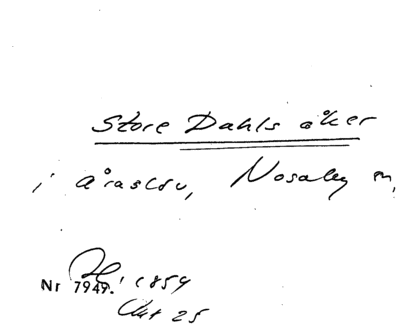 Store Dahls åker
i Åraslöv, Nosaby sn,
Nr 7949. 1859
Akt 25